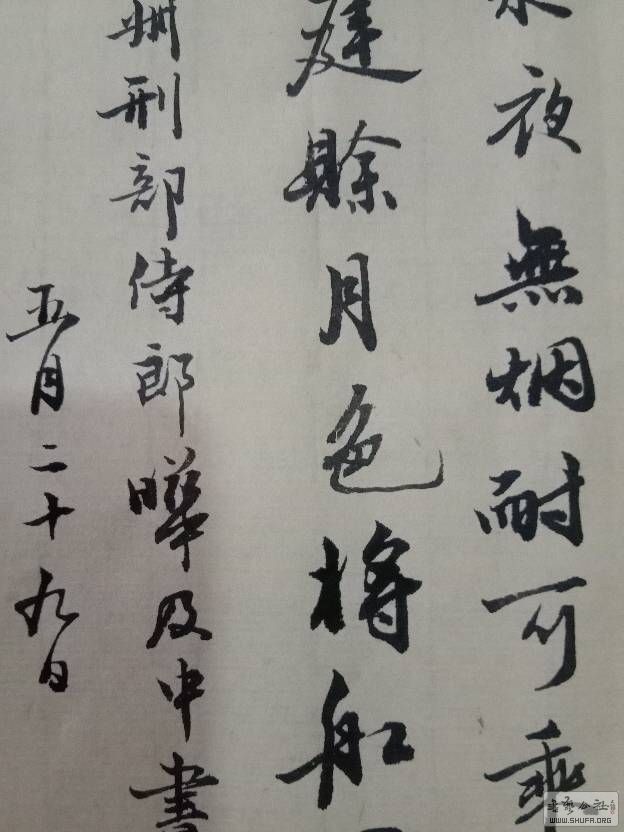 水夜無烟耐可乘
庭賒月色將舡
刑部侍郎曄及中書
五月二十九日
書藝公社
WWW.SHUFA.ORG